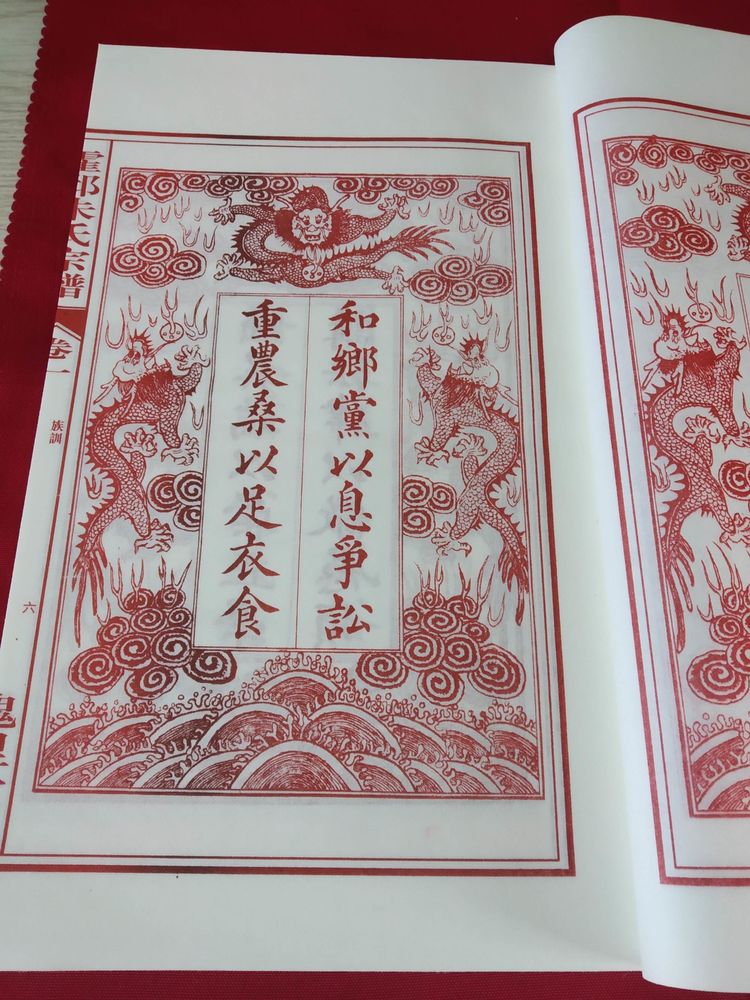 和鄉黨以息爭訟
重農桑以足衣食
朱氏宗譜
卷一
族訓
六